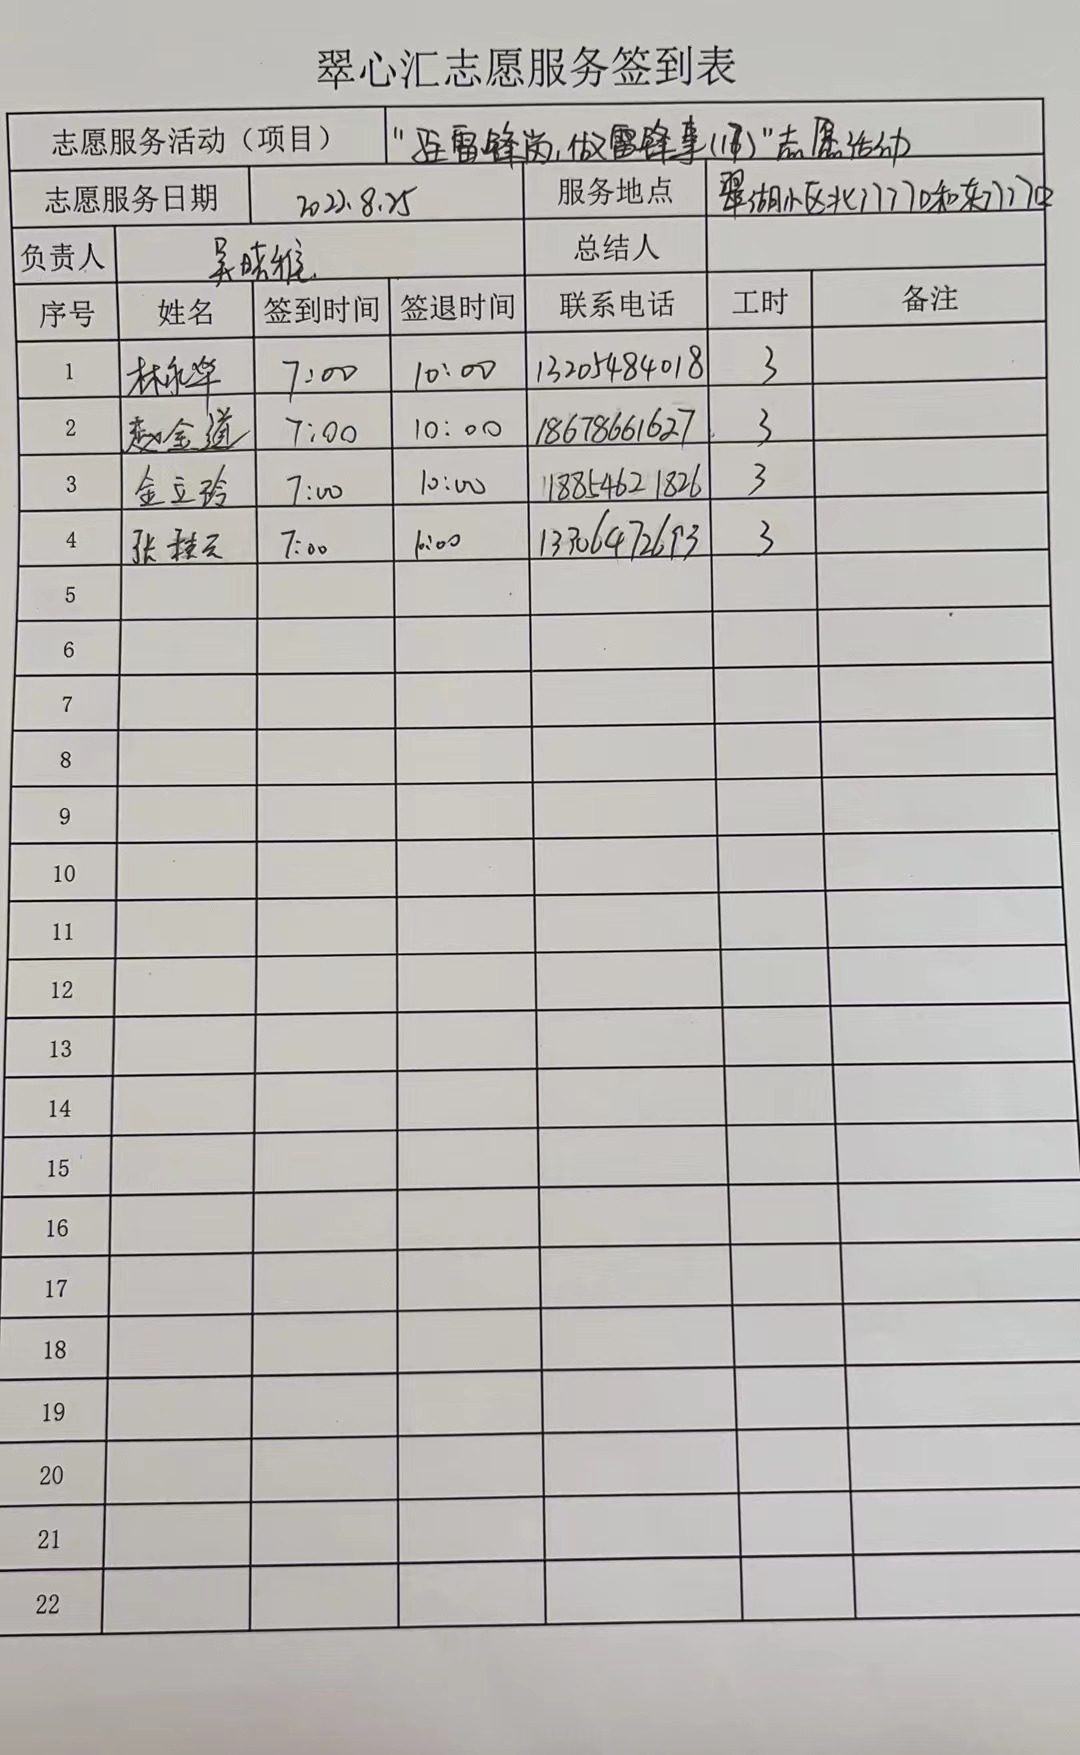 翠心汇志愿服务签到表
志愿服务活动（项目） "站雷锋岗，做雷锋事(17)"志愿活动
志愿服务日期 2022.8.25 服务地点 翠湖小区北门门口和东门门口
负责人 吴晓雅 总结人
序号 姓名 签到时间 签退时间 联系电话 工时 备注
1 林永华 7:00 10:00 13205484018 3
2 赵金道 7:00 10:00 18678661627 3
3 金立玲 7:00 10:00 18854621826 3
4 张桂云 7:00 10:00 13306472693 3
5
6
7
8
9
10
11
12
13
14
15
16
17
18
19
20
21
22